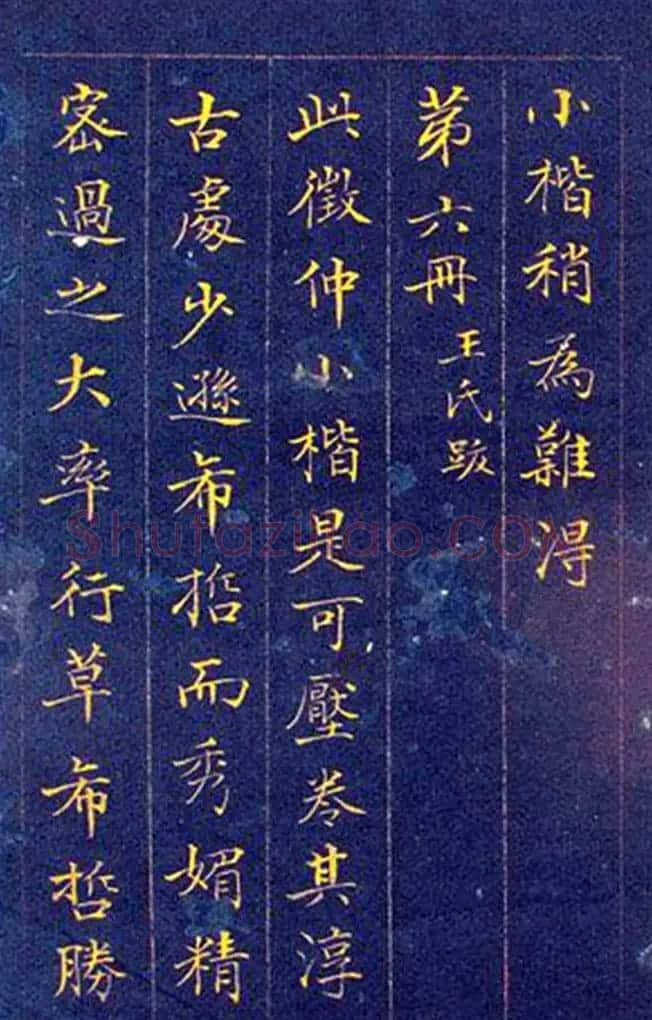 小楷稍為難得
第六冊 王氏跋
此徵仲小楷是可壓卷其淳
古處少遜希哲而秀媚精
密過之大率行草希哲勝
Shufaziliao.com